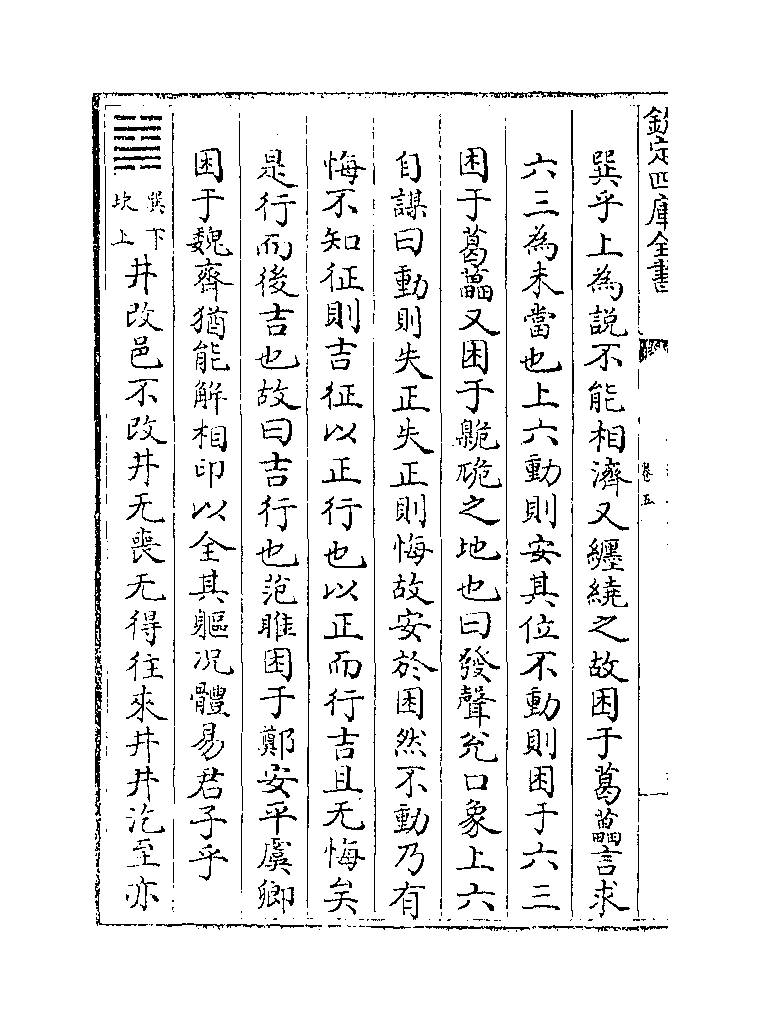 欽定四庫全書
卷五
巽乎上為說不能相濟又纒繞之故困于葛藟言求
六三為未當也上六動則安其位不動則困于六三
困于葛藟又困于臲硊之地也曰發聲兊口象上六
自謀曰動則失正失正則悔故安於困然不動乃有
悔不知征則吉征以正行也以正而行吉且无悔矣
是行而後吉也故曰吉行也范睢困于鄭安平虞卿
困于魏齊猶能解相印以全其軀况體易君子乎
巽下
坎上
井改邑不改井无喪无得往來井井汔至亦